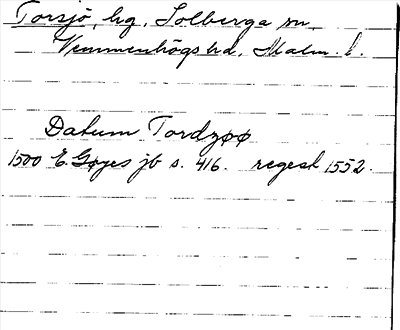 Torsjö, hg, Solberga sn
Vemmenhögs hd, Malm. l.
Datum Tordzøø
1500 E. Gøyes jb s. 416. regest 1552.